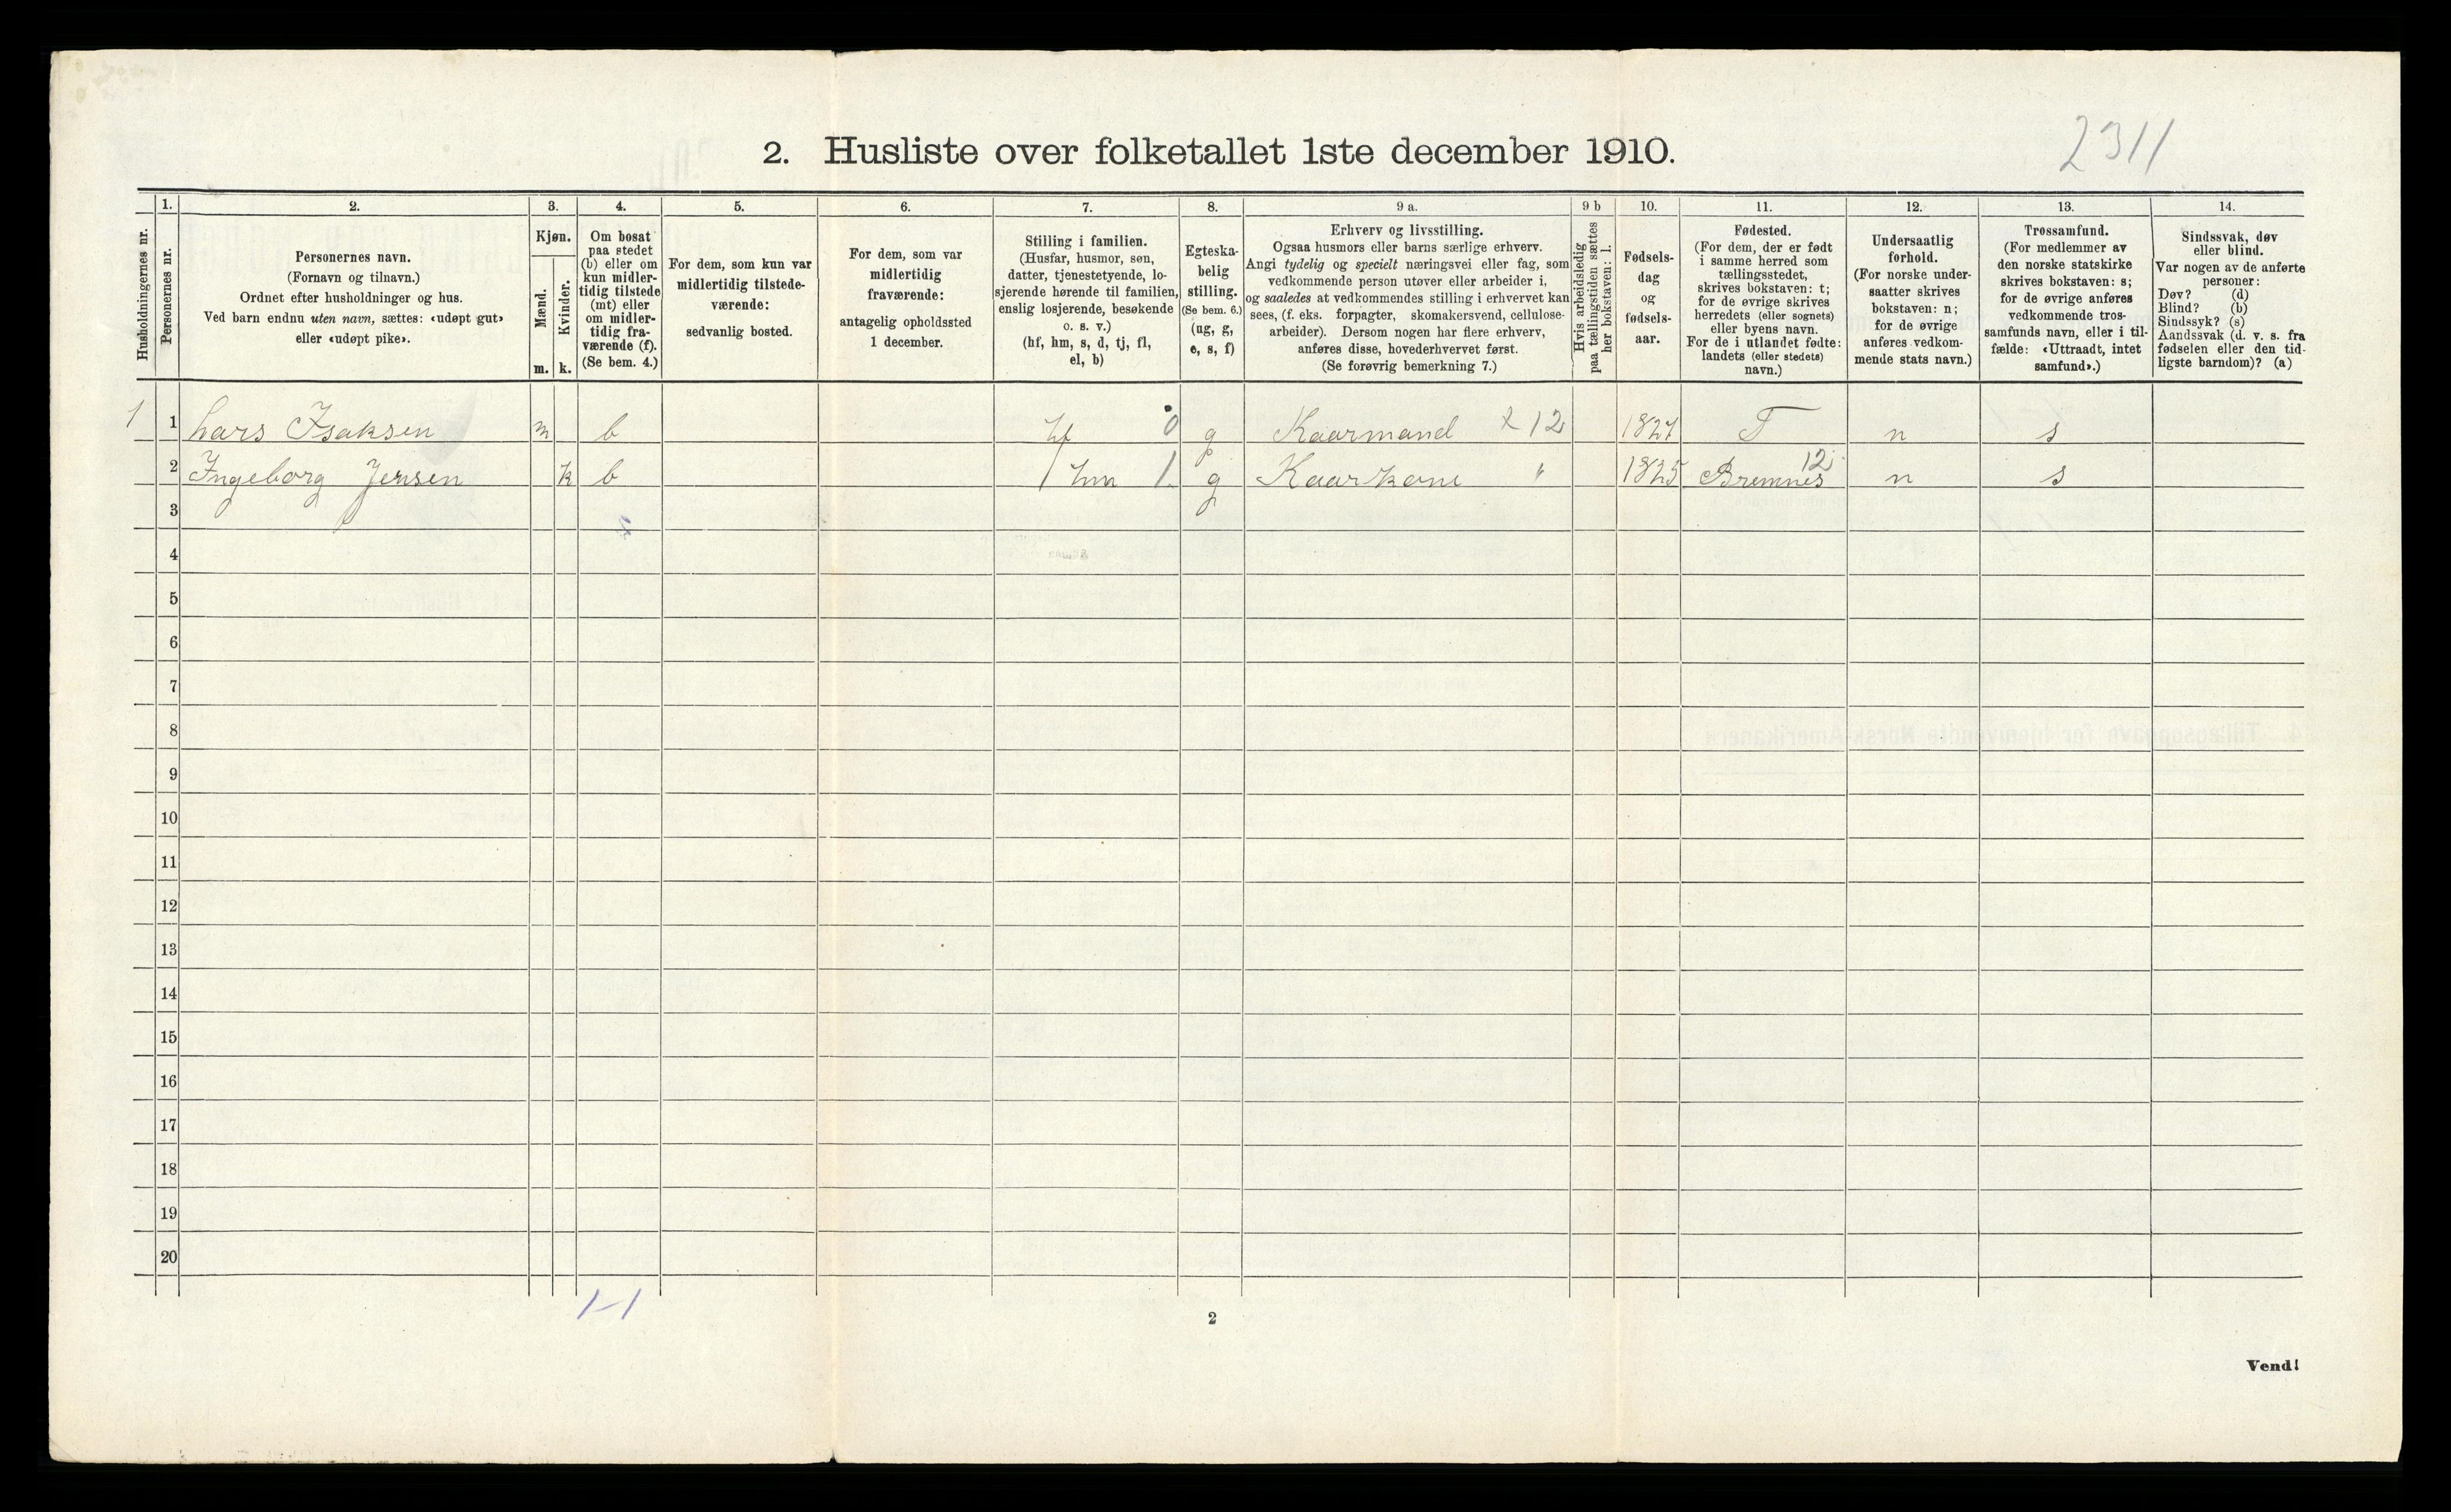 2311
2. Husliste over folketallet 1ste december 1910.
1. 2. 3. 4. 5. 6. 7. 8. 9 a. 9 b 10. 11. 12. 13. 14.
Husholdningernes nr.
Personernes nr.
Personernes navn.
(Fornavn og tilnavn.)
Ordnet efter husholdninger og hus.
Ved barn endnu uten navn, sættes: «udøpt gut»
eller «udøpt pike».
Kjøn.
Mænd.
Kvinder.
m. k.
Om bosat
paa stedet
(b) eller om
kun midler-
tidig tilstede
(mt) eller
om midler-
tidig fra-
værende (f).
(Se bem. 4.)
For dem, som kun var
midlertidig tilstede-
værende:
sedvanlig bosted.
For dem, som var
midlertidig
fraværende:
antagelig opholdssted
1 december.
Stilling i familien.
(Husfar, husmor, søn,
datter, tjenestetyende, lo-
sjerende hørende til familien,
enslig losjerende, besøkende
o. s. v.)
(hf, hm, s, d, tj, fl,
el, b)
Egteska-
belig
stilling.
(Se bem. 6.)
(ug, g,
e, s, f)
Erhverv og livsstilling.
Ogsaa husmors eller barns særlige erhverv.
Angi tydelig og specielt næringsvei eller fag, som
vedkommende person utøver eller arbeider i,
og saaledes at vedkommendes stilling i erhvervet kan
sees, (f. eks. forpagter, skomakersvend, cellulose-
arbeider). Dersom nogen har flere erhverv,
anføres disse, hovederhvervet først.
(Se forøvrig bemerkning 7.)
Hvis arbeidsledig
paa tællingstiden sættes
her bokstaven: l.
Fødsels-
dag
og
fødsels-
aar.
Fødested.
(For dem, der er født
i samme herred som
tællingsstedet,
skrives bokstaven: t;
for de øvrige skrives
herredets (eller sognets)
eller byens navn.
For de i utlandet fødte:
landets (eller stedets)
navn.)
Undersaatlig
forhold.
(For norske under-
saatter skrives
bokstaven: n;
for de øvrige
anføres vedkom-
mende stats navn.)
Trossamfund.
(For medlemmer av
den norske statskirke
skrives bokstaven: s;
for de øvrige anføres
vedkommende tros-
samfunds navn, eller i til-
fælde: «Uttraadt, intet
samfund».)
Sindssvak, døv
eller blind.
Var nogen av de anførte
personer:
Døv? (d)
Blind? (b)
Sindssyk? (s)
Aandssvak (d. v. s. fra
fødselen eller den tid-
ligste barndom)? (a)
1 1 Lars Isaksen m b hf 0 g Kaarmand x 12 1827 T n s
2 Ingeborg Jensen k b hm 1 g Kaarkone " 1825 Bremnes 12 n s
3
4
5
6
7
8
9
10
11
12
13
14
15
16
17
18
19
20
1-1
2
Vend!